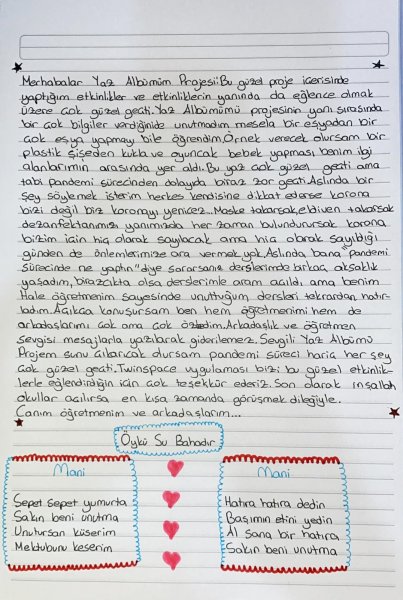 Merhabalar Yaz Albümüm Projesi:Bu güzel proje içerisinde
yaptığım etkinlikler ve etkinliklerin yanında da eğlence olmak
üzere çok güzel geçti.Yaz Albümümü projesinin yanı sırasında
bir çok bilgiler verdiğinide unutmadım mesela bir eşyadan bir
çok eşya yapmayı bile öğrendim.Örnek verecek olursam bir
plastik şişeden kukla ve oyuncak bebek yapması benim ilgi
alanlarımın arasında yer aldı.Bu yaz çok güzel geçti ama
tabi pandemi sürecinden dolayıda biraz zor geçti.Aslında bir
şey söylemek isterim herkes kendisine dikkat ederse korona
bizi değil biz koronayı yenicez.Maske takarsak,eldiven takarsak
dezanfektanımızı yanımızda her zaman bulundurursak korona
bizim için hiç olarak sayılacak ama hiç olarak sayıldığı
günden de önlemlerimize ara vermek yok.Aslında bana "pandemi
sürecinde ne yaptın" diye sorarsanız derslerimde birkaç aksaklık
yaşadım,birazcıkta olsa derslerimle aram açıldı ama benim
Hale öğretmenim sayesinde unuttuğum dersleri tekrardan hatır-
ladım.Açıkça konuşursam ben hem öğretmenimi hem de
arkadaşlarımı çok ama çok özledim.Arkadaşlık ve öğretmen
sevgisi mesajlarla yazılarak giderilemez.Sevgili Yaz Albümü
Projem şunu çıkarıcak olursam pandemi süreci hariç her şey
çok güzel geçti.Twinspace uygulaması bizi bu güzel etkinlik-
lerle eğlendirdiğin için çok teşekkür ederiz.Son olarak inşallah
okullar açılırsa en kısa zamanda görüşmek dileğiyle.
Canım öğretmenim ve arkadaşlarım...
Öykü Su Bahadır
Mani
Sepet sepet yumurta
Sakın beni unutma
Unutursan küserim
Mektubunu keserim
Mani
Hatıra hatıra dedin
Başımın etini yedin
Al sana bir hatıra
Sakın beni unutma